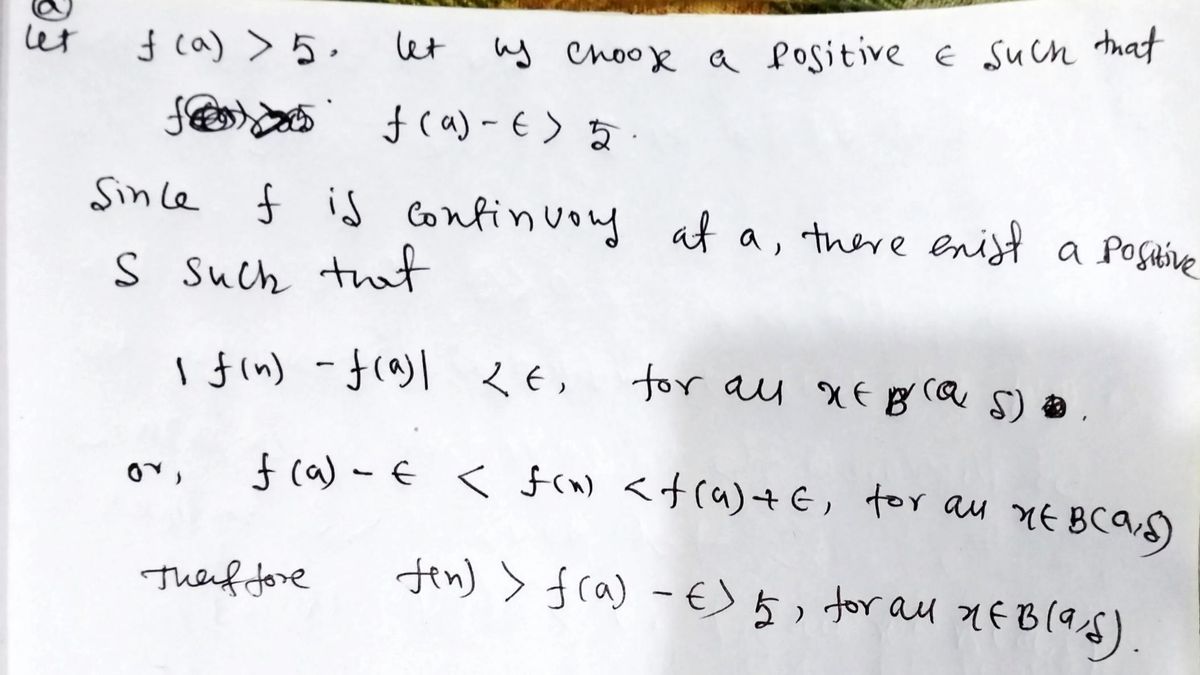 (a)
Let f(a) > 5. let us choose a positive ϵ such that
f(a) - ϵ > 5.
Since f is continuous at a, there exist a positive
δ such that
| f(x) - f(a)| < ϵ, for all x ∈ B(a, δ).
or, f(a) - ϵ < f(x) < f(a) + ϵ, for all x ∈ B(a, δ)
Therefore f(x) > f(a) - ϵ > 5, for all x ∈ B(a, δ).